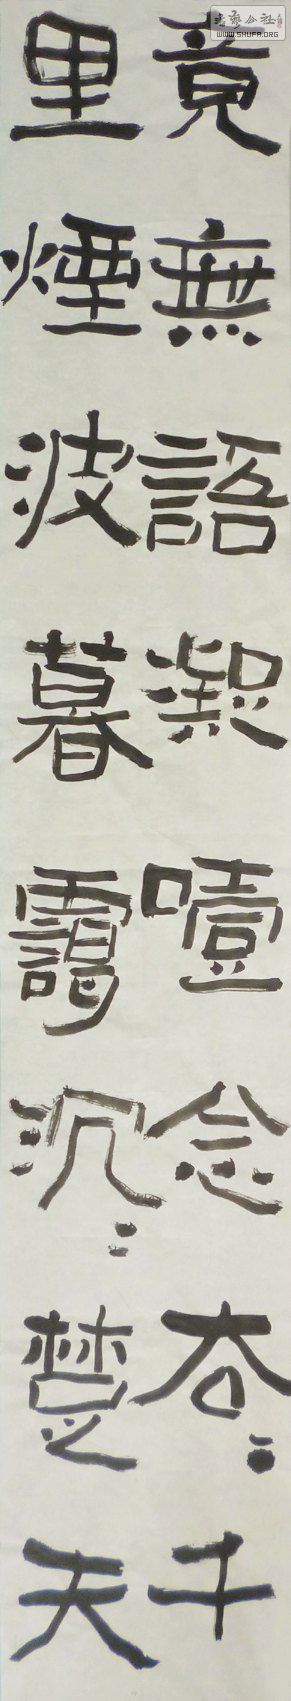 書藝公社
WWW.SHUFA.ORG
竟無語凝噎念去〻千
里煙波暮靄沉〻楚天